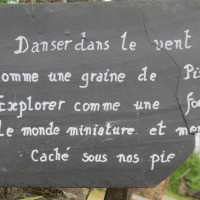 Danser dans le vent
omme une graine de Pi
Explorer comme une fo
Le monde miniature et mer
Caché sous nos pie